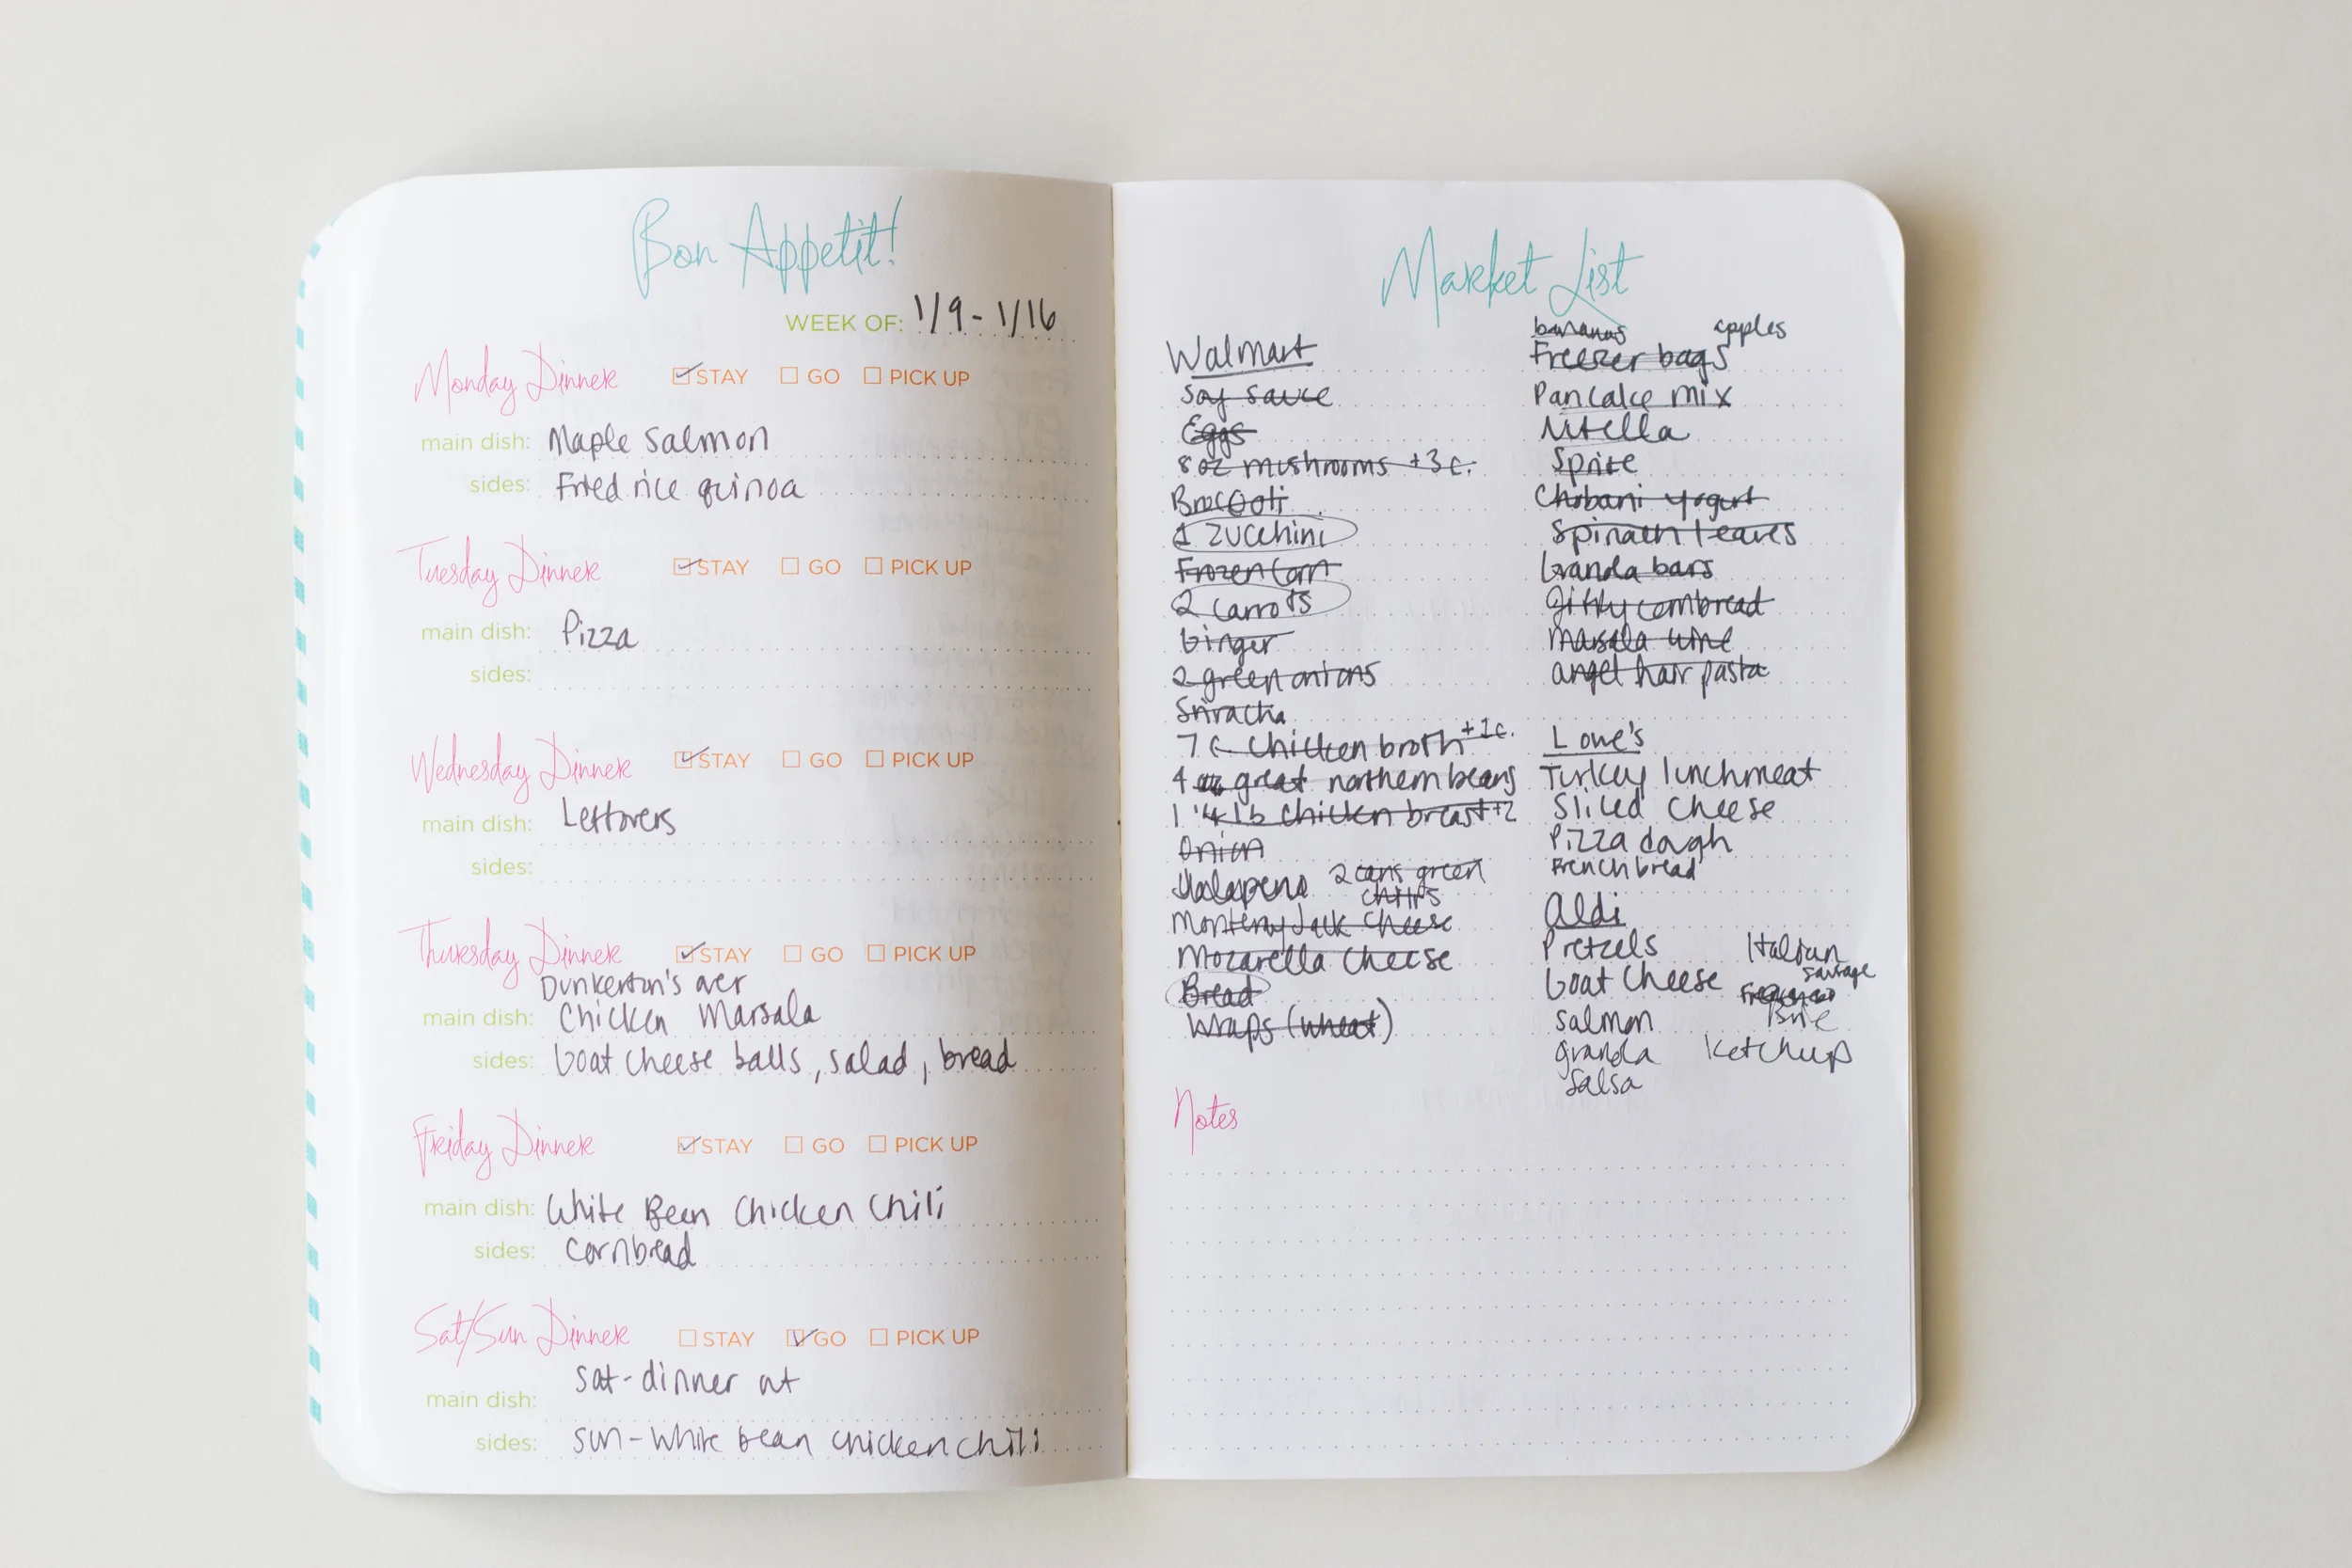 Bon Appetit!
WEEK OF: 1/9 - 1/16
Monday Dinner STAY GO PICK UP
main dish: Maple Salmon
sides: Fried rice quinoa
Tuesday Dinner STAY GO PICK UP
main dish: Pizza
sides:
Wednesday Dinner STAY GO PICK UP
main dish: Leftovers
sides:
Thursday Dinner STAY GO PICK UP
Dunkerton's over
main dish: Chicken Marsala
sides: Goat cheese balls, salad, bread
Friday Dinner STAY GO PICK UP
main dish: White Bean Chicken Chili
sides: cornbread
Sat/Sun Dinner STAY GO PICK UP
main dish: sat - dinner at
sides: sun - white bean chicken chili
Market List
Walmart
Soy sauce
Eggs
8 oz mushrooms +3 c.
Broccoli
1 zucchini
Frozen Corn
2 carrots
Ginger
2 green onions
Sriracha
7 c chicken broth +1c.
4 great northern beans
1 1/4 lb chicken breast +2
Onion
Jalapeno 2 cans green
chilis
Monterey Jack Cheese
Mozarella Cheese
Bread
Wraps (wheat)
bananas apples
Freezer bags
Pancake mix
Nutella
Sprite
Chobani yogurt
Spinach leaves
Granola bars
Jiffy cornbread
Marsala wine
angel hair pasta
Lowe's
Turkey lunchmeat
Sliced Cheese
Pizza dough
French bread
Aldi
Pretzels Italian
sausage
Goat Cheese
salmon Brie
granola Ketchup
Salsa
Notes